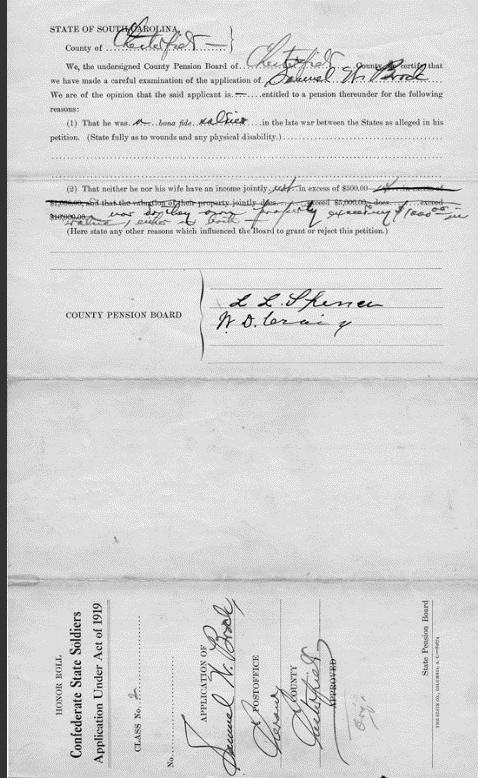 STATE OF SOUTH CAROLINA,
County of Chesterfield
We, the undersigned County Pension Board of Chesterfield County certify that
we have made a careful examination of the application of Samuel W. Brock
We are of the opinion that the said applicant is entitled to a pension thereunder for the following
reasons:
(1) That he was a bona fide soldier in the late war between the States as alleged in his
petition. (State fully as to wounds and any physical disability.)
(2) That neither he nor his wife have an income jointly, not in excess of $500.00
$1,000.00, and that the valuation of their property jointly does exceed $5,000.00 does exceed
$10,000.00 nor do they own property exceeding $1000.00 in
value, either or both
(Here state any other reasons which influenced the Board to grant or reject this petition.)
COUNTY PENSION BOARD
L L Spencer
W. D. Craig
HONOR ROLL
Confederate State Soldiers
Application Under Act of 1919
CLASS No. 2
No.
APPLICATION OF
Samuel W. Brock
POSTOFFICE
Cheraw
COUNTY
Chesterfield
APPROVED
State Pension Board
THE STATE CO., COLUMBIA, S. C.